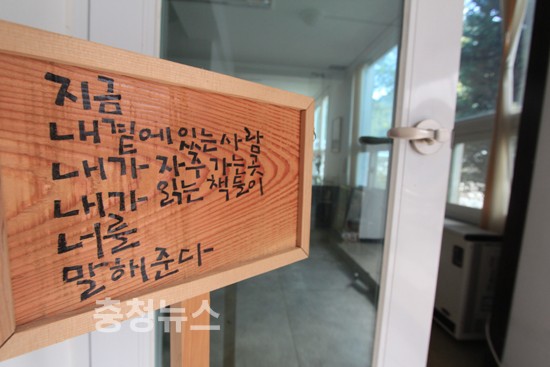 지금
내곁에 있는 사람
내가 자주 가는 곳
내가 읽는 책들이
너를
말해준다
충청뉴스